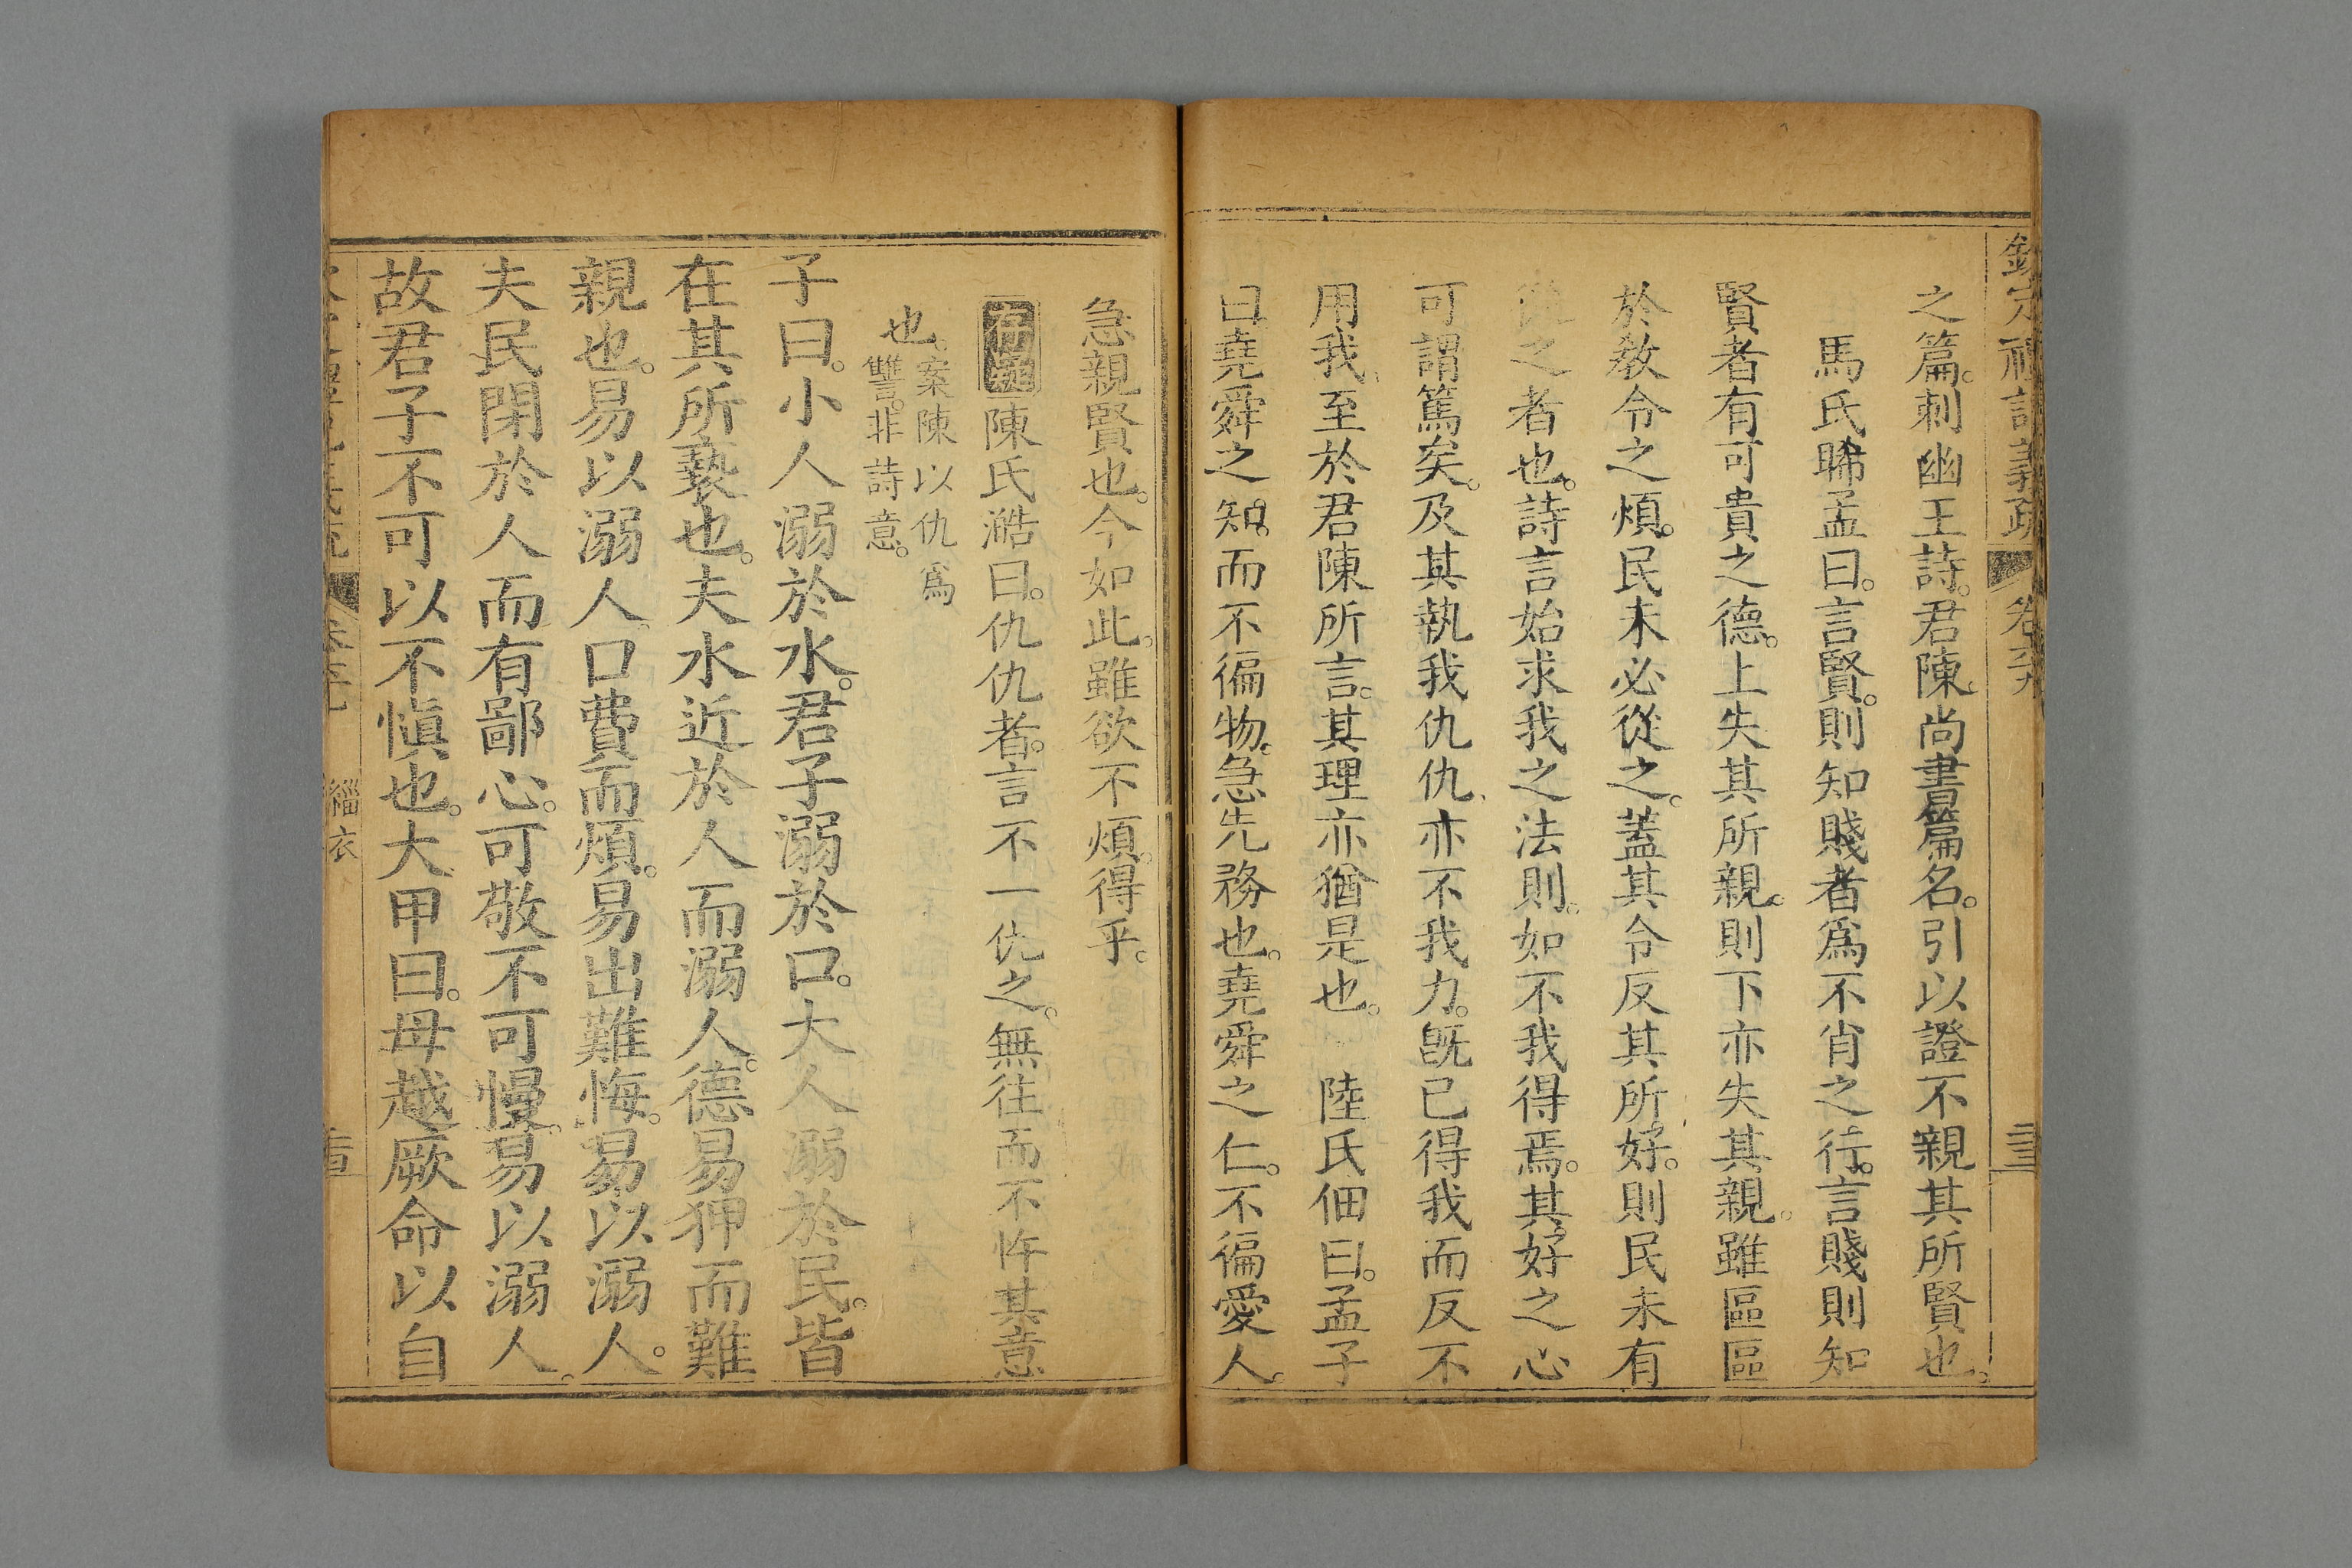 欽定禮記義疏 卷六九 三三
之篇。刺幽王詩。君陳。尚書篇名。引以證不親其所賢也。
馬氏睎孟曰。言賢。則知賤者爲不肖之行。言賤則知
賢者有可貴之德。上失其所親。則下亦失其親。雖區區
於敎令之煩。民未必從之。蓋其令反其所好。則民未有
從之者也。詩言始求我之法則。如不我得焉。其好之心
可謂篤矣。及其執我仇仇。亦不我力。旣已得我而反不
用我。至於君陳所言。其理亦猶是也。 陸氏佃曰。孟子
曰。堯舜之知。而不徧物。急先務也。堯舜之仁。不徧愛人。
急親賢也。今如此。雖欲不煩。得乎。
存疑 陳氏澔曰。仇仇者。言不一仇之。無往而不忤其意
也。案陳以仇爲
讐。非詩意。
子曰。小人溺於水。君子溺於口。大人溺於民。皆
在其所褻也。夫水近於人而溺人。德易狎而難
親也。易以溺人。口費而煩。易出難悔。易以溺人。
夫民閉於人而有鄙心。可敬不可慢。易以溺人。
故君子不可以不愼也。大甲曰。毋越厥命以自
緇衣